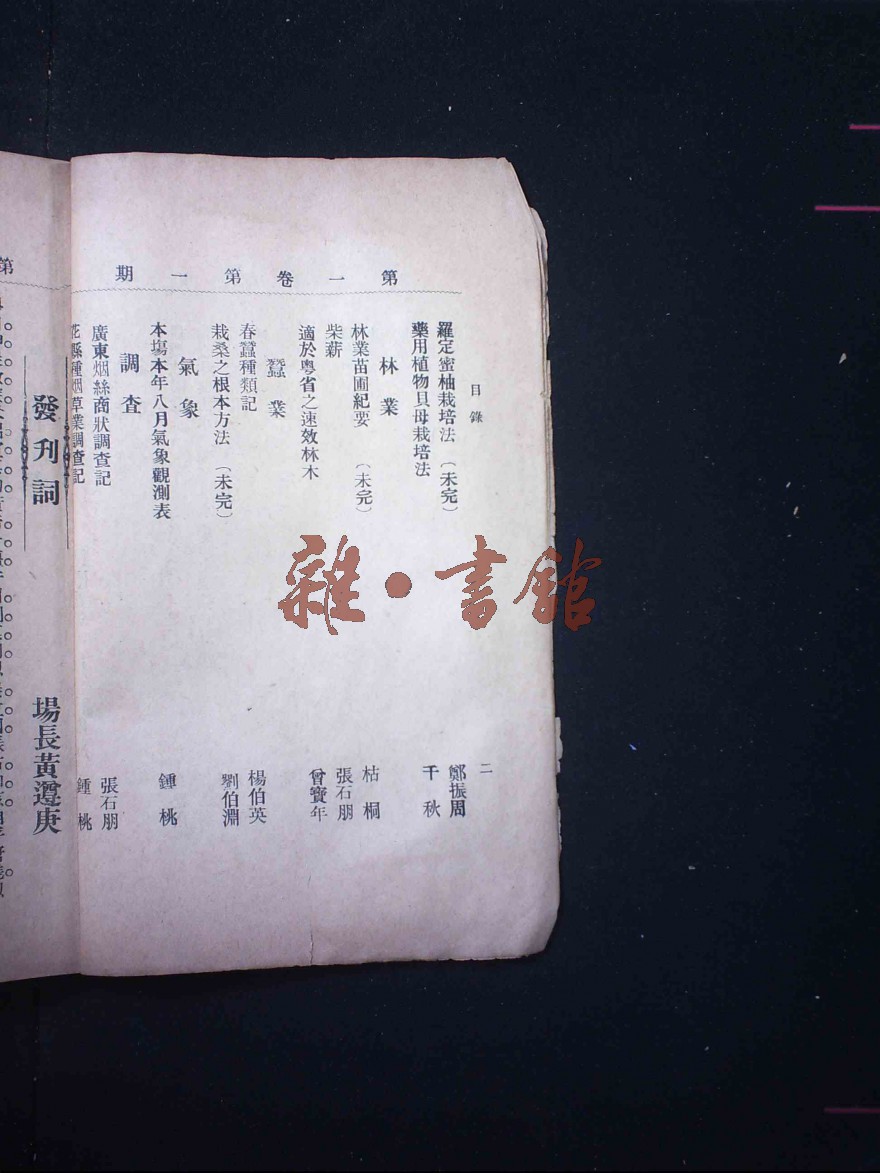 第一卷第一期
目錄
二
羅定蜜柚栽培法 (未完) 鄭振周
藥用植物貝母栽培法 千秋
林業
林業苗圃紀要 (未完) 枯桐
柴薪 張石朋
適於粵省之速效林木 曾寶年
蠶業
春蠶種類記 楊伯英
栽桑之根本方法 (未完) 劉伯淵
氣象
本場本年八月氣象觀測表 鍾桃
調查
廣東烟絲商狀調查記 張石朋
花縣種烟草業調查記 鍾桃
第
發刊詞
場長黃遵庚
雜·書館